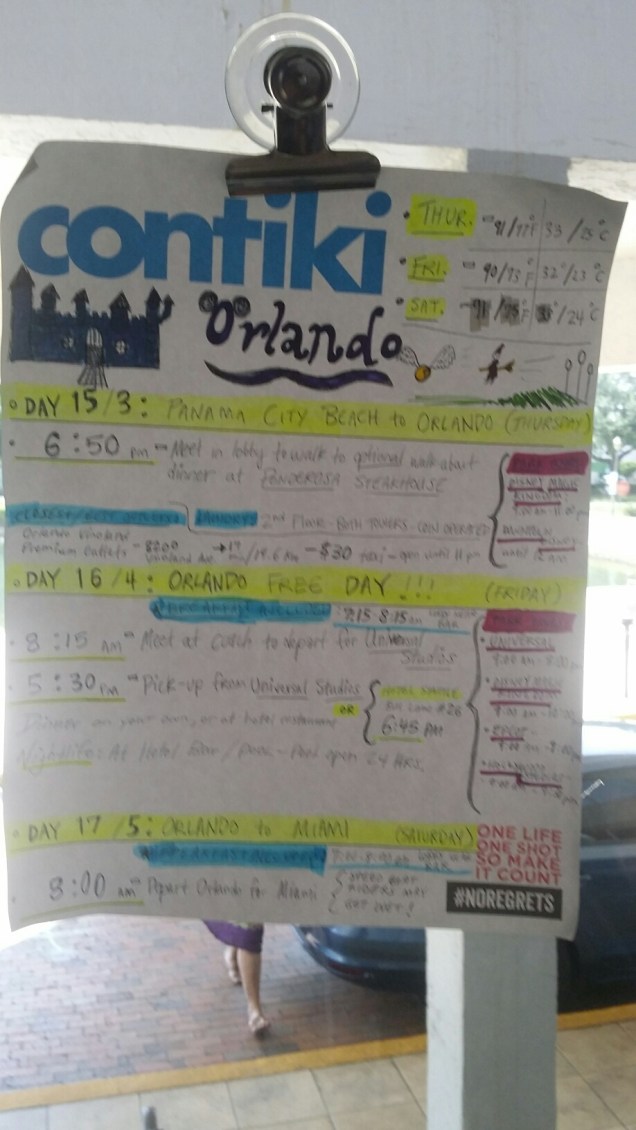 contiki
Orlando
• THUR. - 91/77°F 33/25°C
• FRI. - 90/73°F 32°/23°C
• SAT. /24°C
° DAY 15/3: PANAMA CITY BEACH to ORLANDO (THURSDAY)
• 6:50 pm - Meet in lobby to walk to optional walkabout
dinner at PONDEROSA STEAKHOUSE
LAUNDRY 2nd FLOOR - BOTH TOWERS - COIN OPERATED
Orlando Vineland
Premium Outlets - 8200 Vineland Ave → 17 mi/19.6 Km - $30 taxi - open until 11 pm
PARK TIMES
DISNEY MAGIC
KINGDOM:
° DAY 16/4: ORLANDO FREE DAY!!! (FRIDAY)
BREAKFAST INCLUDED 7:15-8:15 am
BAR
• 8:15 AM - Meet at coach to depart for Universal
Studios
• 5:30 pm - Pick-up from Universal Studios
OR
HOTEL SHUTTLE
BUS LANE #26
6:45 pm
Dinner on your own, or at hotel restaurant
Nightlife: At Hotel Bar / Pool - Pool open 24 HRS.
PARK TIMES
• UNIVERSAL
• DISNEY MAGIC
KINGDOM
• EPCOT
° DAY 17/5: ORLANDO to MIAMI (SATURDAY)
BREAKFAST INCLUDED
BAR
• 8:00 am - Depart Orlando for Miami
SPEED BOAT
RIDERS MAY
GET WET!
ONE LIFE
ONE SHOT
SO MAKE
IT COUNT
#NOREGRETS